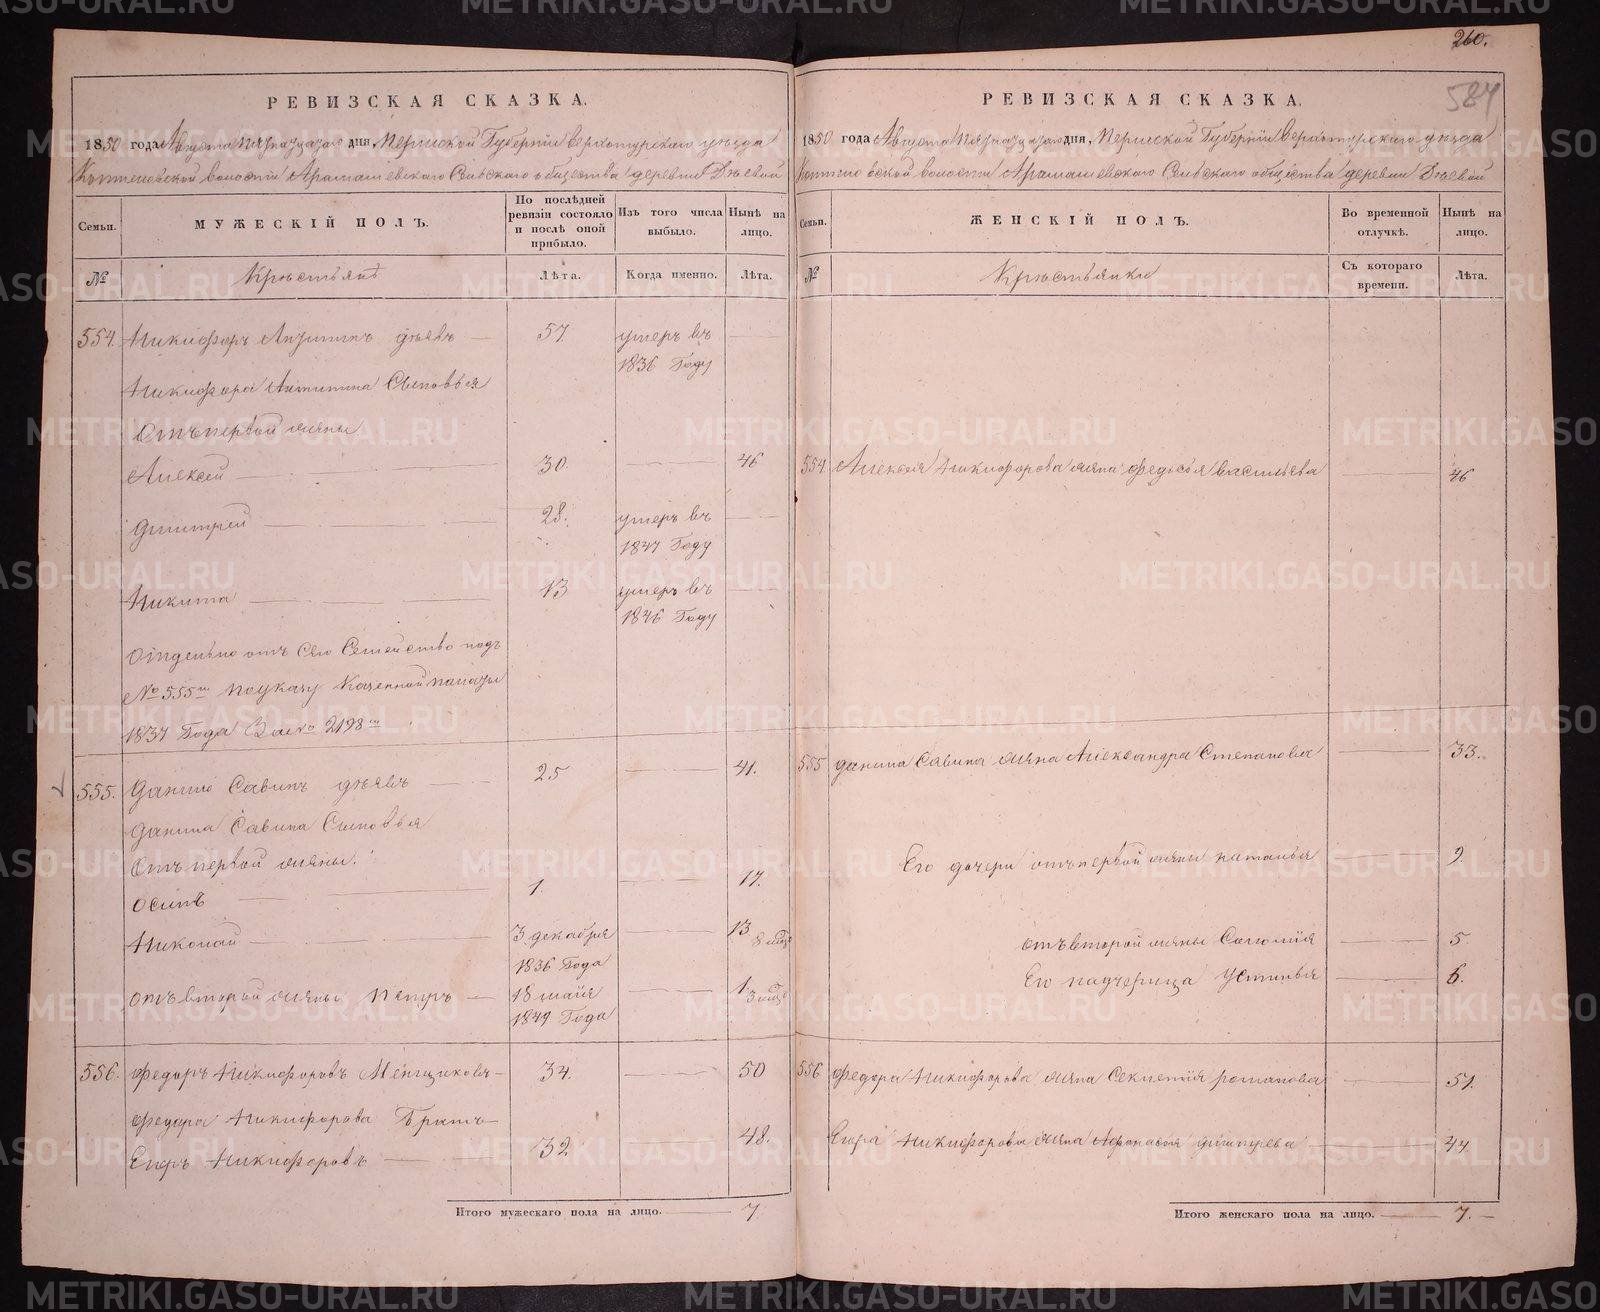 260.
584
РЕВИЗСКАЯ СКАЗКА.
1850 года Августа дня, Пермской Губерніи Верхотурскаго уѣзда
волости Арамашевскаго Сельскаго общества деревни Дѣевой
Семьи.
МУЖЕСКІЙ ПОЛЪ.
По послѣдней ревизіи состояло и послѣ оной прибыло.
Изъ того числа выбыло.
Нынѣ на лицо.
№
Крестьянъ
Лѣта.
Когда именно.
Лѣта.
554. Никифоръ Антипинъ Дѣевъ 57. умеръ въ
1836 Году
Никифора Антипина Сыновья
Отъ первой жены
Алексей 30. 46
Дмитрей 28. умеръ въ
1847 Году
Никита 13 умеръ въ
1846 Году
Отдельно отъ сего Семейство подъ
№ 555мъ по указу Казенной палаты
1837 Года За № 2198мъ
555. Данило Савинъ Дѣевъ 25 41.
Данила Савина Сыновья
Отъ первой жены.
Осипъ 1. 17.
Николай 3 декабря 13
1836 Года 8 мѣс
отъ второй жены Петръ 18 майя 1
1849 Года 3 мѣс
556. Федоръ Никифоровъ Меншиковъ 34. 50
Федора Никифорова Братъ
Егоръ Никифоровъ 32. 48.
Итого мужескаго пола на лицо. 7
РЕВИЗСКАЯ СКАЗКА.
1850 года Августа дня, Пермской Губерніи Верхотурскаго уѣзда
волости Арамашевскаго Сельскаго общества деревни Дѣевой
Семьи.
ЖЕНСКІЙ ПОЛЪ.
Во временной отлучкѣ.
Нынѣ на лицо.
№
Крестьянки
Съ котораго времени.
Лѣта.
554 Алексея Никифорова жена Федосья Васильева 46
555 Данила Савина жена Александра Степановна 33.
Его дочери отъ первой жены Наталья 9.
отъ второй жены Саломия 5.
Его падчерица Устинья 6.
556 Федора Никифорова жена Секлетия Романова 51.
Егора Никифорова жена Афанасия Дмитрева 44.
Итого женскаго пола на лицо. 7.